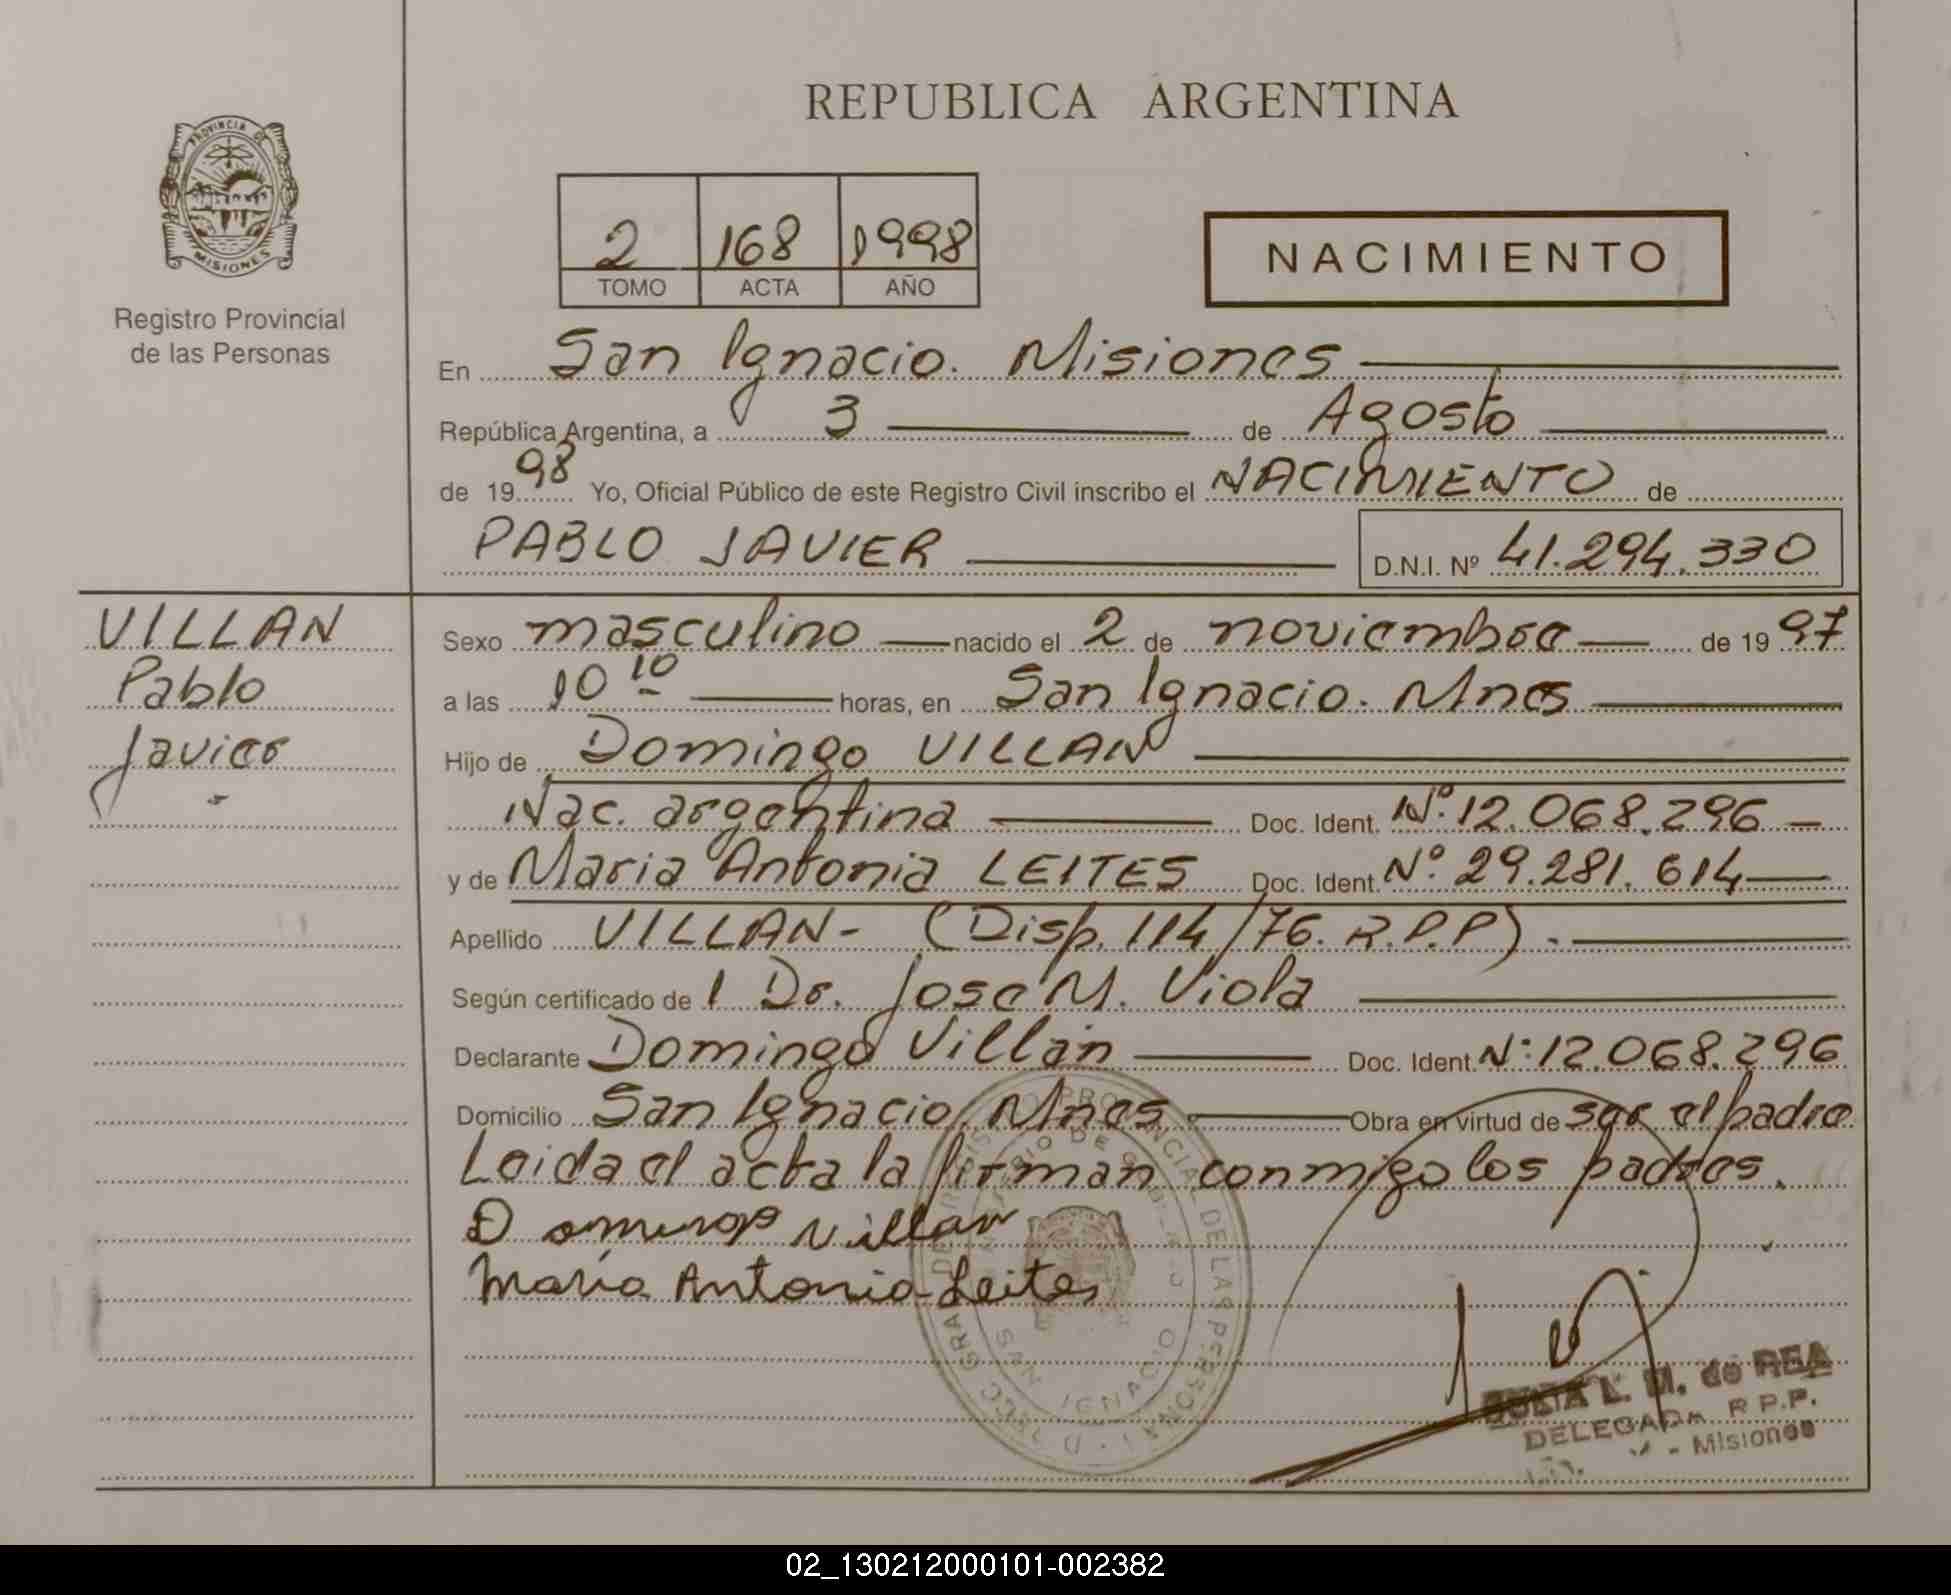 REPUBLICA ARGENTINA
PROVINCIA DE
MISIONES
Registro Provincial
de las Personas
2 168 1998
TOMO ACTA AÑO
NACIMIENTO
En San Ignacio. Misiones
República Argentina, a 3 de Agosto
de 1998 Yo, Oficial Público de este Registro Civil inscribo el NACIMIENTO de
PABLO JAVIER D.N.I. Nº 41.294.330
VILLAN
Pablo
Javier
Sexo masculino nacido el 2 de noviembre de 1997
a las 10 10 horas, en San Ignacio. Mnes
Hijo de Domingo VILLAN
Nac. argentina Doc. Ident. Nº. 12.068.296
y de Maria Antonia LEITES Doc. Ident. Nº. 29.281.614
Apellido VILLAN- (Disp. 114/76. R.P.P).
Según certificado de l Dr. Jose M. Viola
Declarante Domingo Villán Doc. Ident. Nº: 12.068.296
Domicilio San Ignacio. Mnes. Obra en virtud de ser el padre
Leida el acta la firman conmigo los padres.
Domingo Villan
María Antonia Leites
SAN IGNACIO
L. M. de REA
DELEGADA R.P.P.
- Misiones
02_130212000101-002382